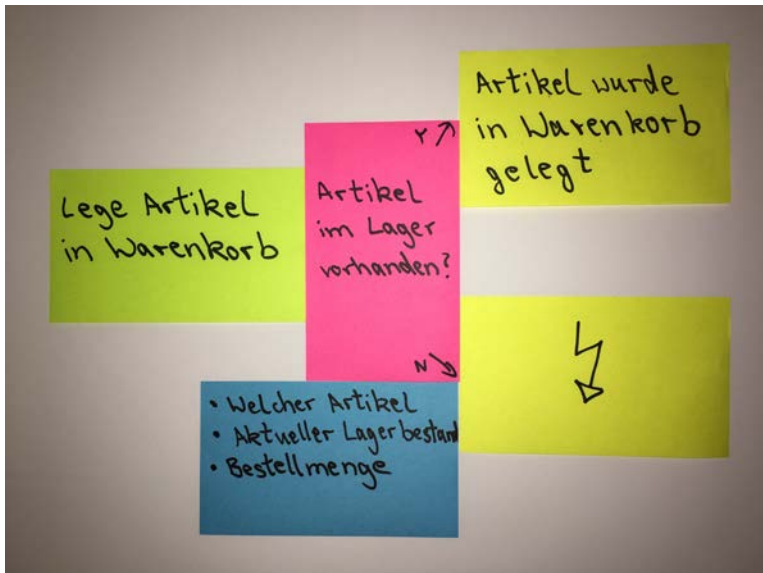 Lege Artikel
in Warenkorb
Artikel
im Lager
vorhanden?
Y
N
Artikel wurde
in Warenkorb
gelegt
• Welcher Artikel
• Aktueller Lagerbestand
• Bestellmenge